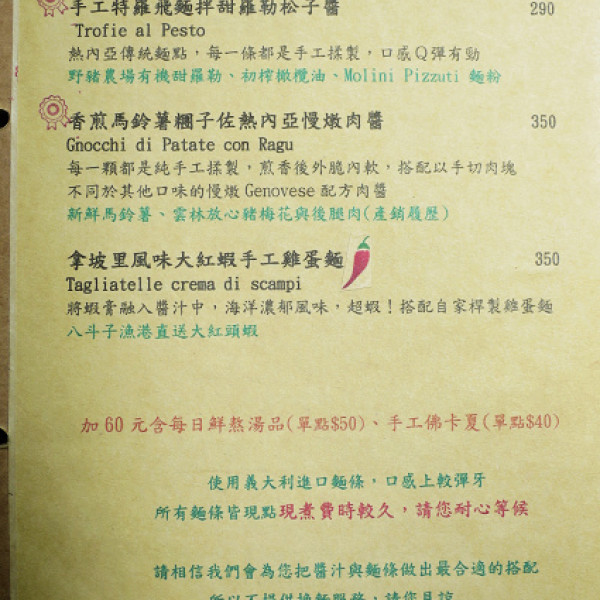 手工特羅飛麵拌甜羅勒松子醬 290
Trofie al Pesto
熱內亞傳統麵點，每一條都是手工揉製，口感Q彈有勁
野豬農場有機甜羅勒、初榨橄欖油、Molini Pizzuti 麵粉
香煎馬鈴薯糰子佐熱內亞慢燉肉醬 350
Gnocchi di Patate con Ragu
每一顆都是純手工揉製，煎香後外脆內軟，搭配以手切肉塊
不同於其他口味的慢燉 Genovese 配方肉醬
新鮮馬鈴薯、雲林放心豬梅花與後腿肉(產銷履歷)
拿坡里風味大紅蝦手工雞蛋麵 350
Tagliatelle crema di scampi
將蝦膏融入醬汁中，海洋濃郁風味，超蝦！搭配自家桿製雞蛋麵
八斗子漁港直送大紅頭蝦
加 60 元含每日鮮熬湯品(單點$50)、手工佛卡夏(單點$40)
使用義大利進口麵條，口感上較彈牙
所有麵條皆現點現煮費時較久，請您耐心等候
請相信我們會為您把醬汁與麵條做出最合適的搭配
所以不提供換麵服務，請您見諒